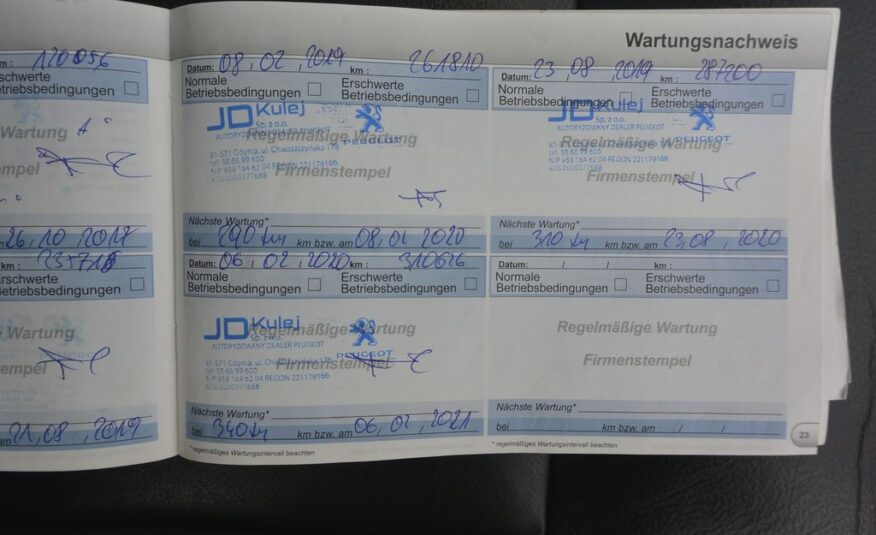 Wartungsnachweis
120056
schwerte
Betriebsbedingungen
Wartung
stempel
26.10.2017
km :
schwerte
Betriebsbedingungen
Wartung
stempel
am 21,08,2019
Datum: 08, 02, 2019 km : 261810
Normale
Betriebsbedingungen
Erschwerte
Betriebsbedingungen
JD Kulej
Sp. z o.o.
AUTORYZOWANY DEALER PEUGEOT
PEUGEOT
Regelmäßige Wartung
81-571 Gdynia, ul. Chwaszczyńska 178
tel. 58 66 99 600
NIP 958 164 62 04 REGON 221179166
KRS 0000377688
Firmenstempel
Nächste Wartung*
bei 290 km bzw. am 08,02 2020
Datum: 23,08,2019 km : 287200
Normale
Betriebsbedingungen
Erschwerte
Betriebsbedingungen
JD Kulej
Sp. z o.o.
AUTORYZOWANY DEALER PEUGEOT
PEUGEOT
Regelmäßige Wartung
NIP 958 164 62 04 REGON 221179166
KRS 0000377688
Firmenstempel
Nächste Wartung*
bei 310 km bzw. am 23,08,2020
Datum: 06, 02, 2020 km : 310626
Normale
Betriebsbedingungen
Erschwerte
Betriebsbedingungen
JD Kulej
Sp. z o.o.
AUTORYZOWANY DEALER PEUGEOT
PEUGEOT
Regelmäßige Wartung
81-571 Gdynia, ul. Chwaszczyńska 178
tel. 58 66 99 600
NIP 958 164 62 04 REGON 221179166
KRS 0000377688
Firmenstempel
Nächste Wartung*
bei 340 km bzw. am 06,02,2021
* regelmäßiges Wartungsintervall beachten
Datum: / / km :
Normale
Betriebsbedingungen
Erschwerte
Betriebsbedingungen
Regelmäßige Wartung
Firmenstempel
Nächste Wartung*
bei km bzw. am / /
* regelmäßiges Wartungsintervall beachten
23